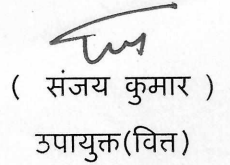 ( संजय कुमार )
उपायुक्त(वित्त)